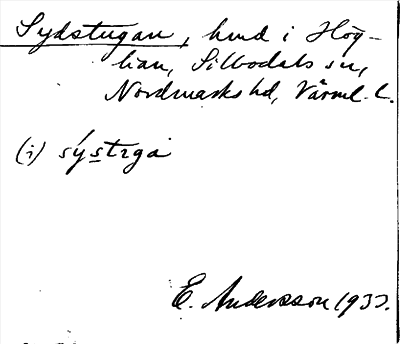 Sydstugan, hmd i Hög-
lian, Silbodals sn,
Nordmarks hd, Värml. l.
(i) sýstrga
E. Andersson 1933.